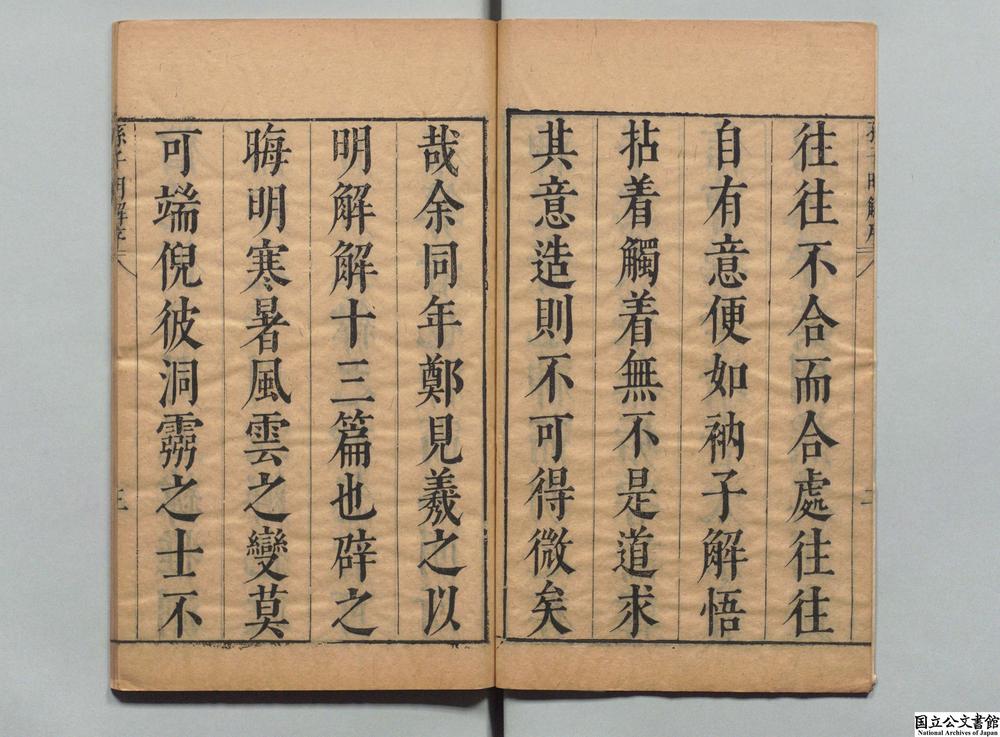 往往不合而合處往往
自有意便如衲子解悟
拈着觸着無不是道求
其意造則不可得微矣
哉余同年鄭見羲之以
明解解十三篇也辟之
晦明寒暑風雲之變莫
可端倪彼洞霛之士不
国立公文書館
National Archives of Japan